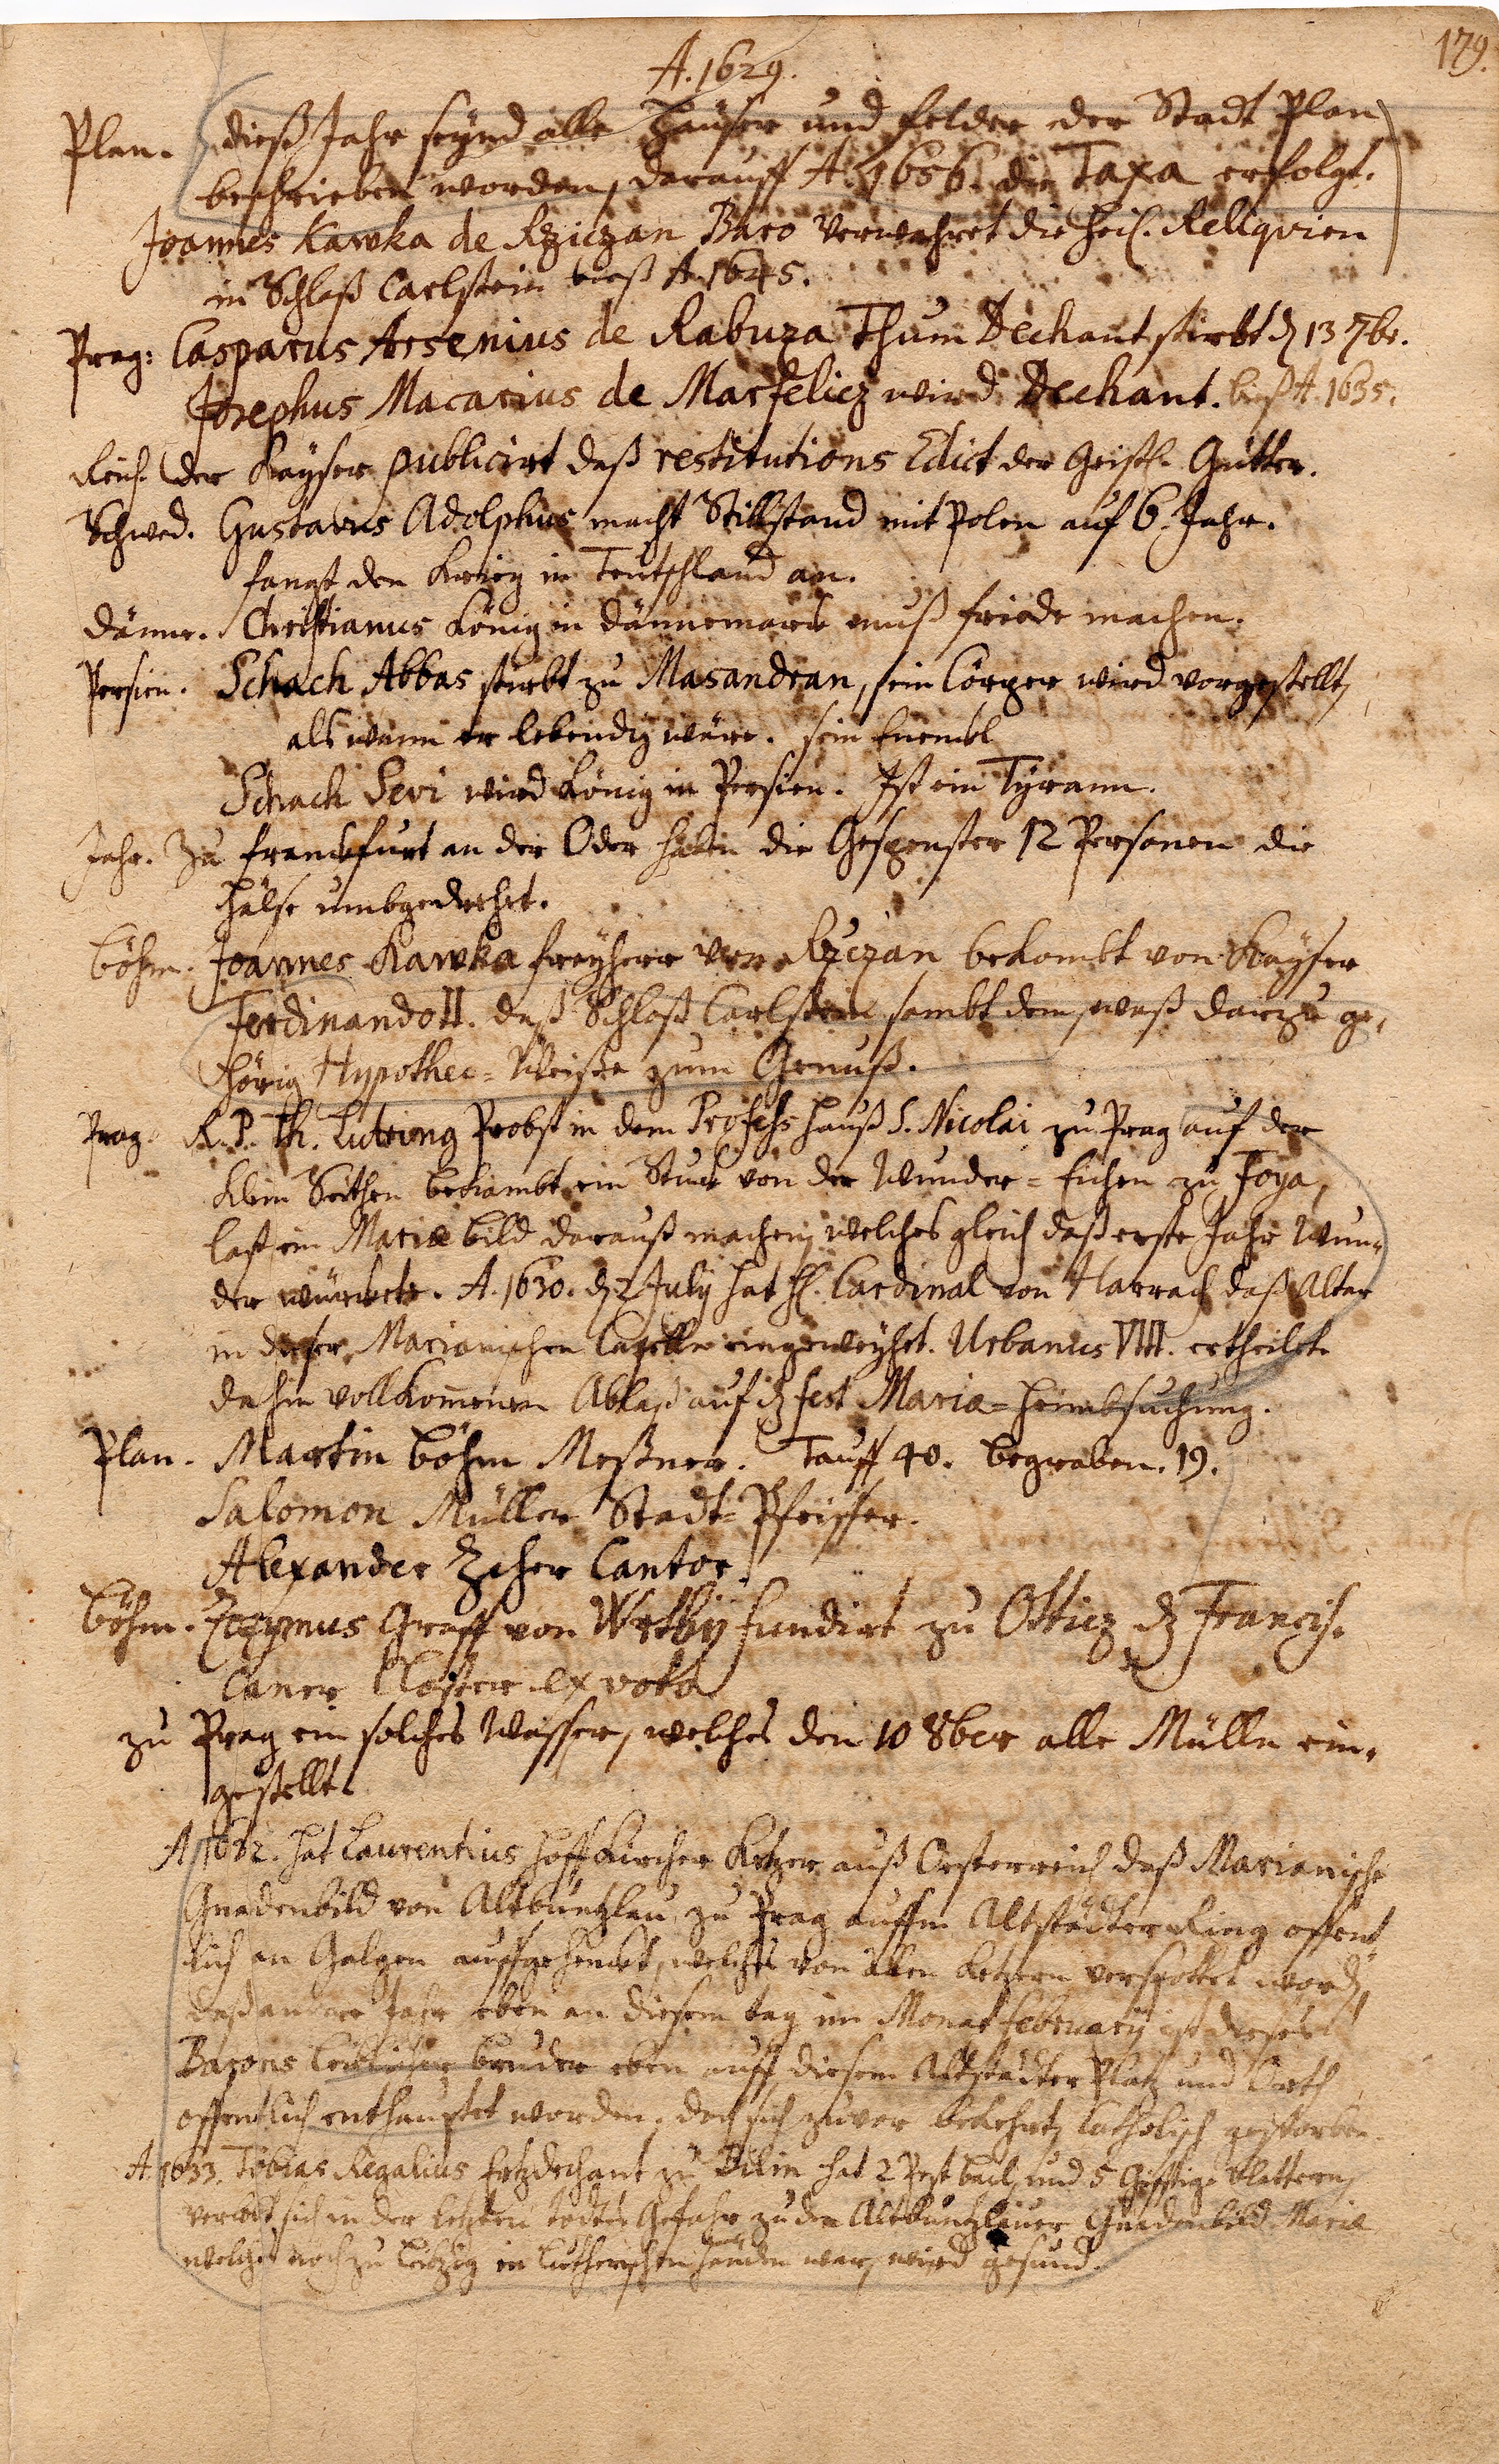 179.
A. 1629.
Plan. dieß Jahr seynd alle Häuser und felder der Stadt Plan
beschrieben worden, darauff A. 1656. die Taxa erfolgt.
Joannes Kawka de Rziczan Baro verwahret die heil. Reliqvien
in Schloß Carlstein bieß A. 1645.
Prag: Casparus Arsenius de Rabuza Thum Dechant stirbt d 13 7br.
Josephus Macarius de Merfelicz wird Dechant. bieß A. 1635.
Reich. der Kayser publicirt daß restitutions Edict der Geistl. Gütter.
Schwed. Gustavus Adolphus macht Stillstand mit Polen auf 6. Jahr.
fangt den Krieg in Teutschland an.
Dänne. Christianus König in Dännemark muß friede machen.
Persien. Schach Abbas stirbt zu Masandran, sein Cörper wird vorgestellt,
als wann er lebendig wäre. sein Enenkl
Schach Sevi wird König in Persien. Ist ein Tyrann.
Jahr. Zu Franckfurt an der Oder haben die Gespenster 12 Personen die
Hälse umbgedrehet.
Böhm. Joannes Kawka freyherr von Rziczan bekombt von Kayser
Ferdinando II. daß Schloß Carlstein sambt dem, waß darzu ge-
hörig Hypothec-Weiße zum Genuß.
Prag. R. P. Th. Probst in dem Profess Hauß S. Nicolai zu Prag auf der
klein Seithen bekambt ein Stuck von der Wunder-Eichen zu Foya,
last ein Mariæ bild darauß machen, welches gleich daß erste Jahr Wun-
der würckete. A. 1630. d 2 July hat H. Cardinal von Harrach daß Altar
in dieser Marianischen Capelle eingeweyhet. Urbanus VIII. ertheilet
dahin vollkommenen Ablaß auf d fest Mariæ-Heimbsuchung.
Plan. Martin Böhm Meßner. Tauff 40. begraben. 19.
Salomon Müller Stadt-Pfeiffer.
Alexander Zeher Cantor.
Böhm. Zozymus Graff von Wrtby fundirt zu Otticz d Francis-
caner Closter ex voto
zu Prag ein solches Wasser, welches den 10 8ber alle Mülln ein-
gestellt.
A. 1632. hat Laurentius Hoffkircher Ketzer auß Oesterreich daß Marianische
Gnadenbild von Altbuntzlau zu Prag auffm Altstädter Ring offent-
lich an Galgen auffgehenckt, welches von allen Ketzern verspottet word,
daß andere Jahr eben an diesem tag im Monat february ist dieses
Barons leiblicher bruder eben auff diesem Altstädter Platz und Orth
offentlich enthauptet worden, doch sich zuvor bekehrt, Catholisch gestorben.
A. 1633. Tobias Regalius Ertzdechant zu Bilin hat 2 Pest beul, und 5 Gifftige Blattern,
verlobt sich in der letzten todtes Gefahr zu den Altbuntzlauer Gnadenbild Mariæ
welches noch zu Leibzig in lutherischen Händen war, wird gesund.